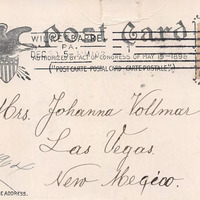 Post Card
WILKES-BARRE,
PA.
DEC
AUTHORIZED BY ACT OF CONGRESS OF MAY 19-1898
("POST CARTE-POSTAL CARD-CARTE POSTALE")
Mrs. Johanna Vollmar
Las Vegas
New Mexico.
E ADDRESS.